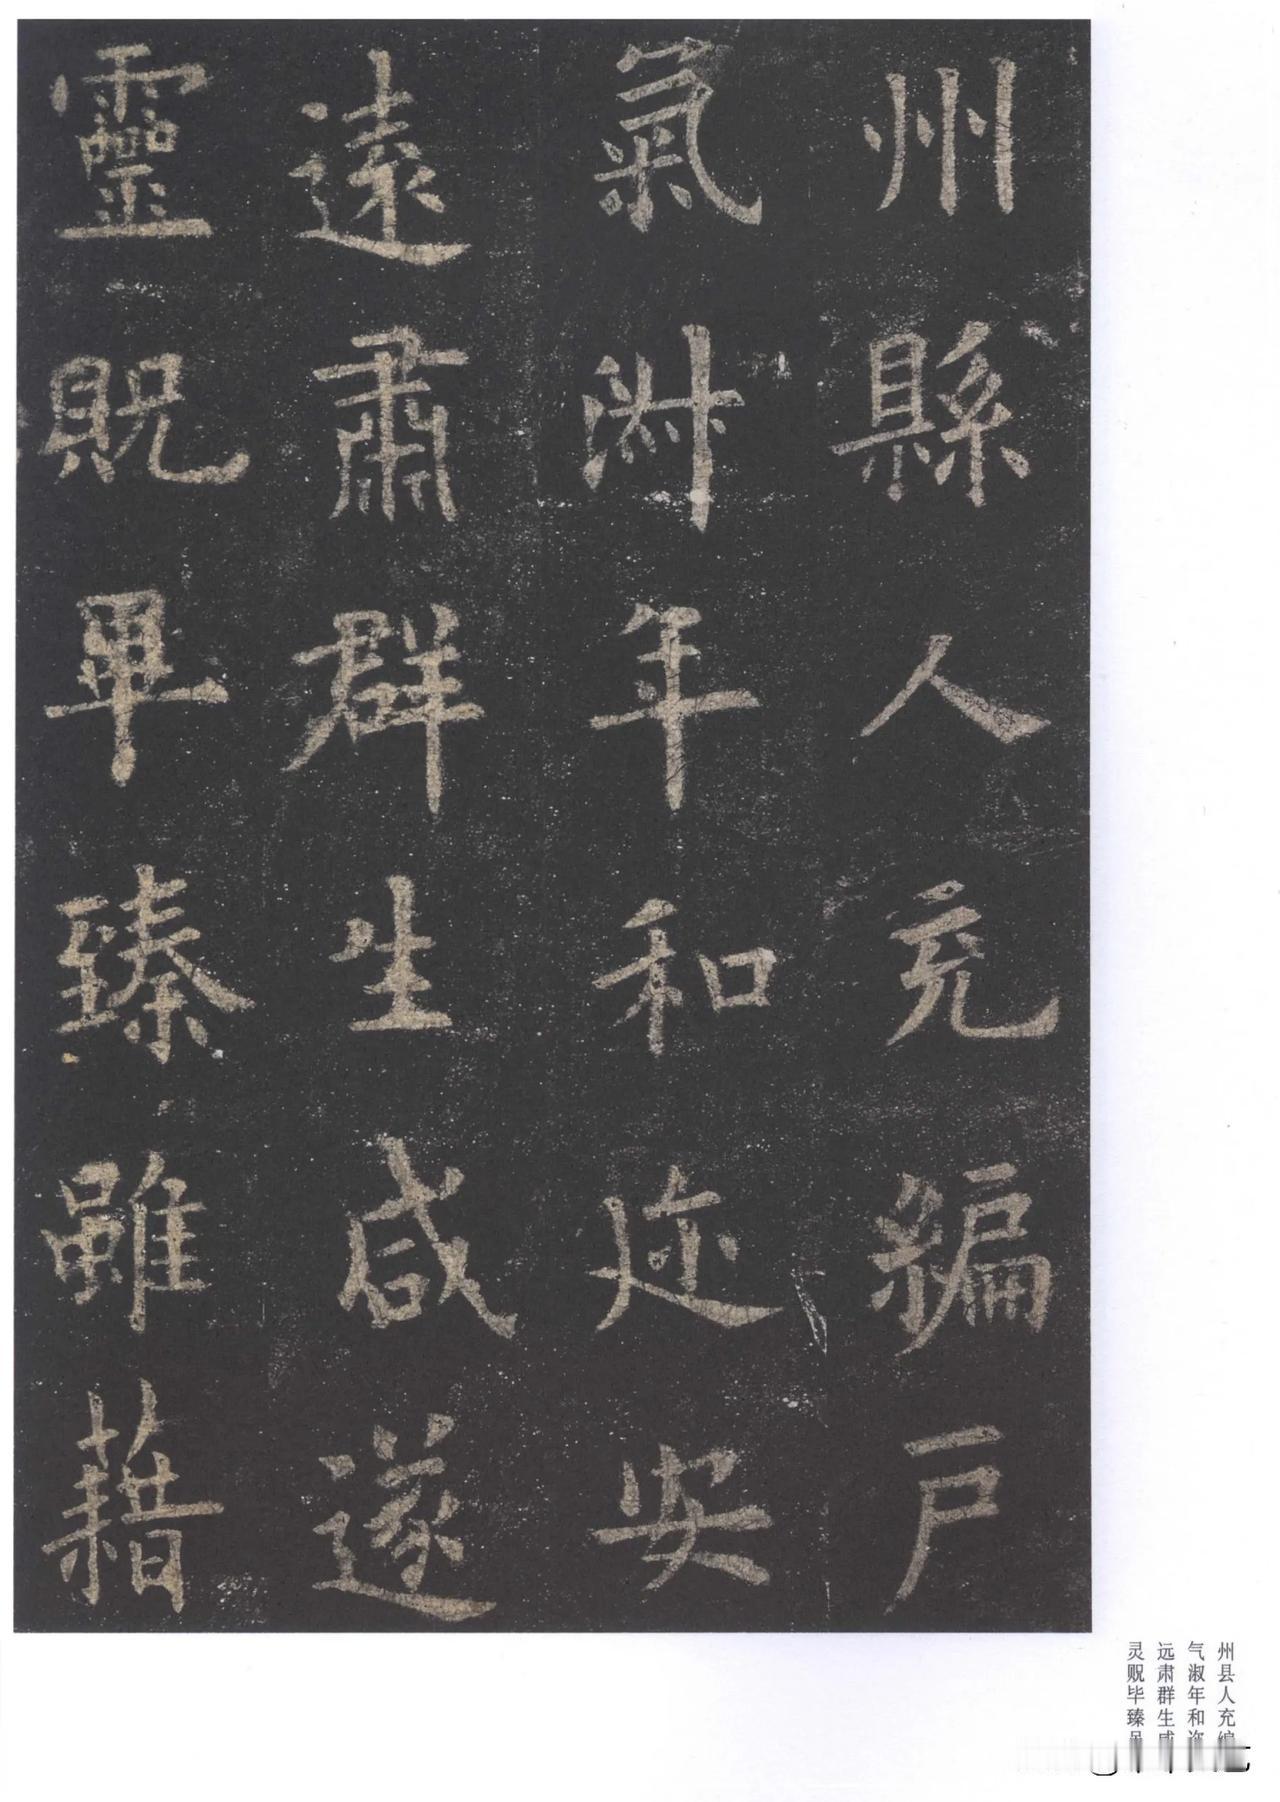 州縣人充編戶
氣淑年和迩安
遠肅群生咸遂
靈貺畢臻雖藉
州县人充编
气淑年和迩
远肃群生咸
灵贶毕臻虽